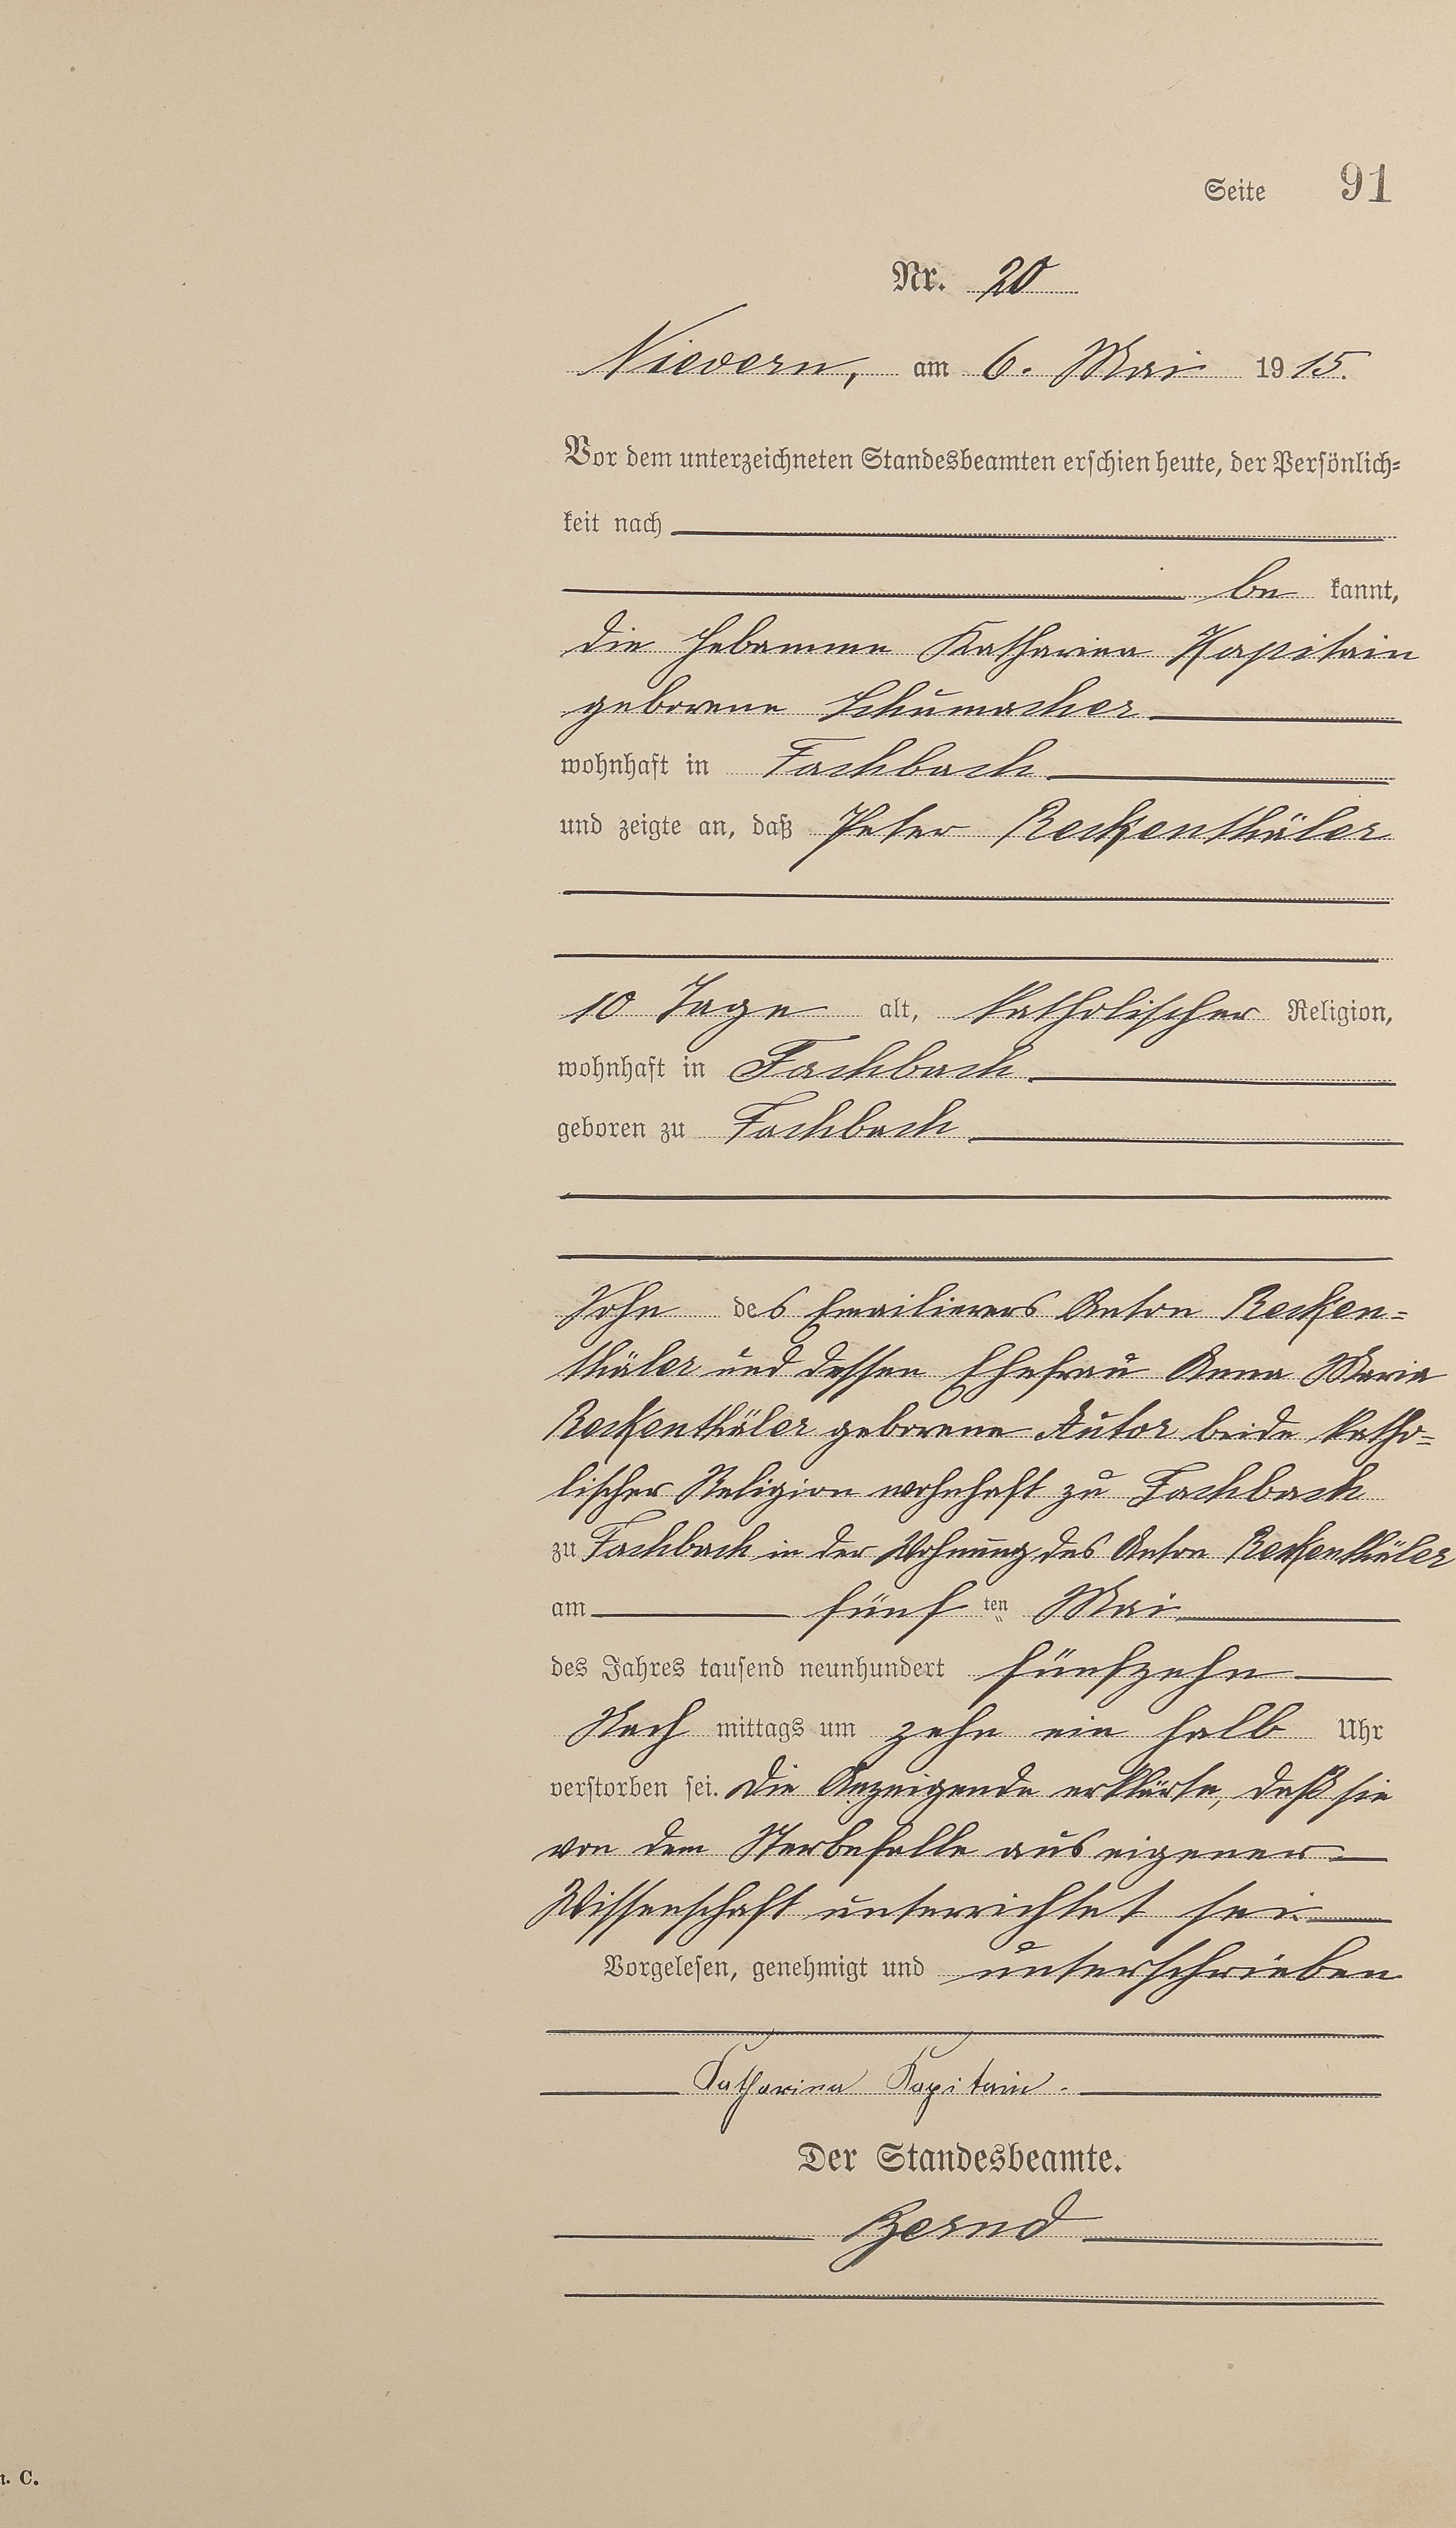 Seite 91
Nr. 20
Nievern, am 6. Mai 1915.
Vor dem unterzeichneten Standesbeamten erschien heute, der Persönlich-
keit nach
be kannt,
die Hebamme Katharina Kapitain
geborene Schumacher
wohnhaft in Fachbach
und zeigte an, daß Peter Reckenthäler
10 Tage alt, katholischer Religion,
wohnhaft in Fachbach
geboren zu Fachbach
Sohn des Emailierers Anton Recken-
thäler und dessen Ehefrau Anna Maria
Reckenthäler geborene Autor beide katho-
lischer Religion wohnhaft zu Fachbach
zu Fachbach in der Wohnung des Anton Reckenthäler
am fünf ten Mai
des Jahres tausend neunhundert fünfzehn
Nach mittags um zehn ein halb Uhr
verstorben sei. Die Anzeigende erklärte, daß sie
von dem Sterbefalle aus eigener
Wissenschaft unterrichtet sei.
Vorgelesen, genehmigt und unterschrieben
Katharina Kapitain.
Der Standesbeamte.
Bernd
. C.